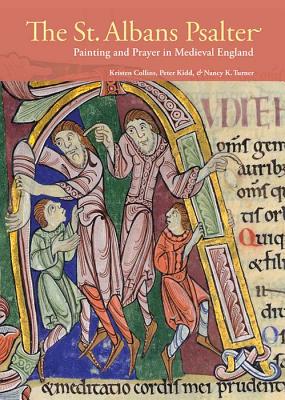 The St. Albans Psalter
Painting and Prayer in Medieval England
Kristen Collins, Peter Kidd, & Nancy K. Turner
UDITE H
om̅s gen
auribus
om̅s qu
tis orbi
Quiq
& fili
& meditatio cordis mei prudent